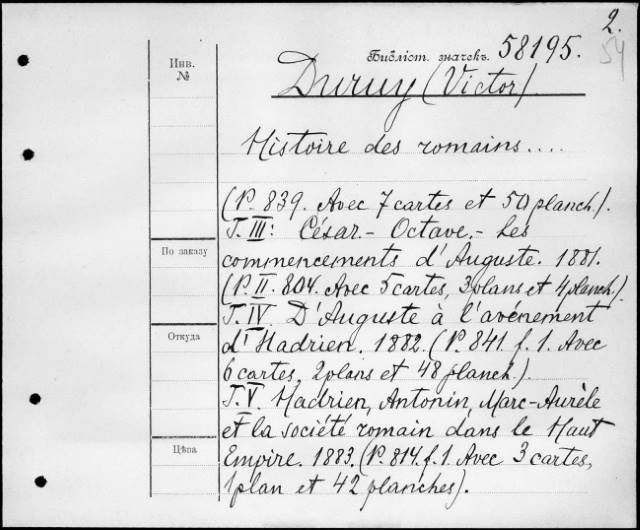 2.
54
Инв.
№
Библіот. значекъ. 58195.
Duruy (Victor).
Histoire des romains....
(P. 839. Avec 7 cartes et 50 planch.).
T. III: César.- Octave.- Les
По заказу
commencements d'Auguste. 1881.
(P. II. 804. Avec 5 cartes, 3 plans et 4 planch.)
T. IV. D'Auguste à l'avénement
Откуда
d'Hadrien. 1882. (P. 841. f. 1. Avec
6 cartes, 2 plans et 48 planch.)
T. V. Hadrien, Antonin, Marc-Aurèle
et la société romain dans le Haut
Цѣна
Empire. 1883. (P. 814. f. 1. Avec 3 cartes,
1 plan et 42 planches).